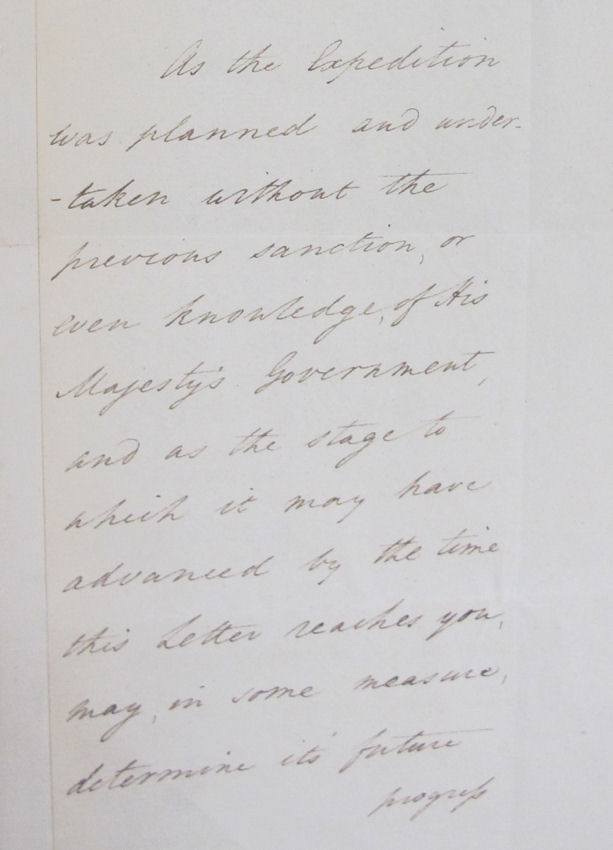 As the Expedition
was planned and under-
-taken without the
previous sanction, or
even knowledge, of His
Majesty's Government,
and as the stage to
which it may have
advanced by the time
this Letter reaches you,
may, in some measure,
determine its future
progress